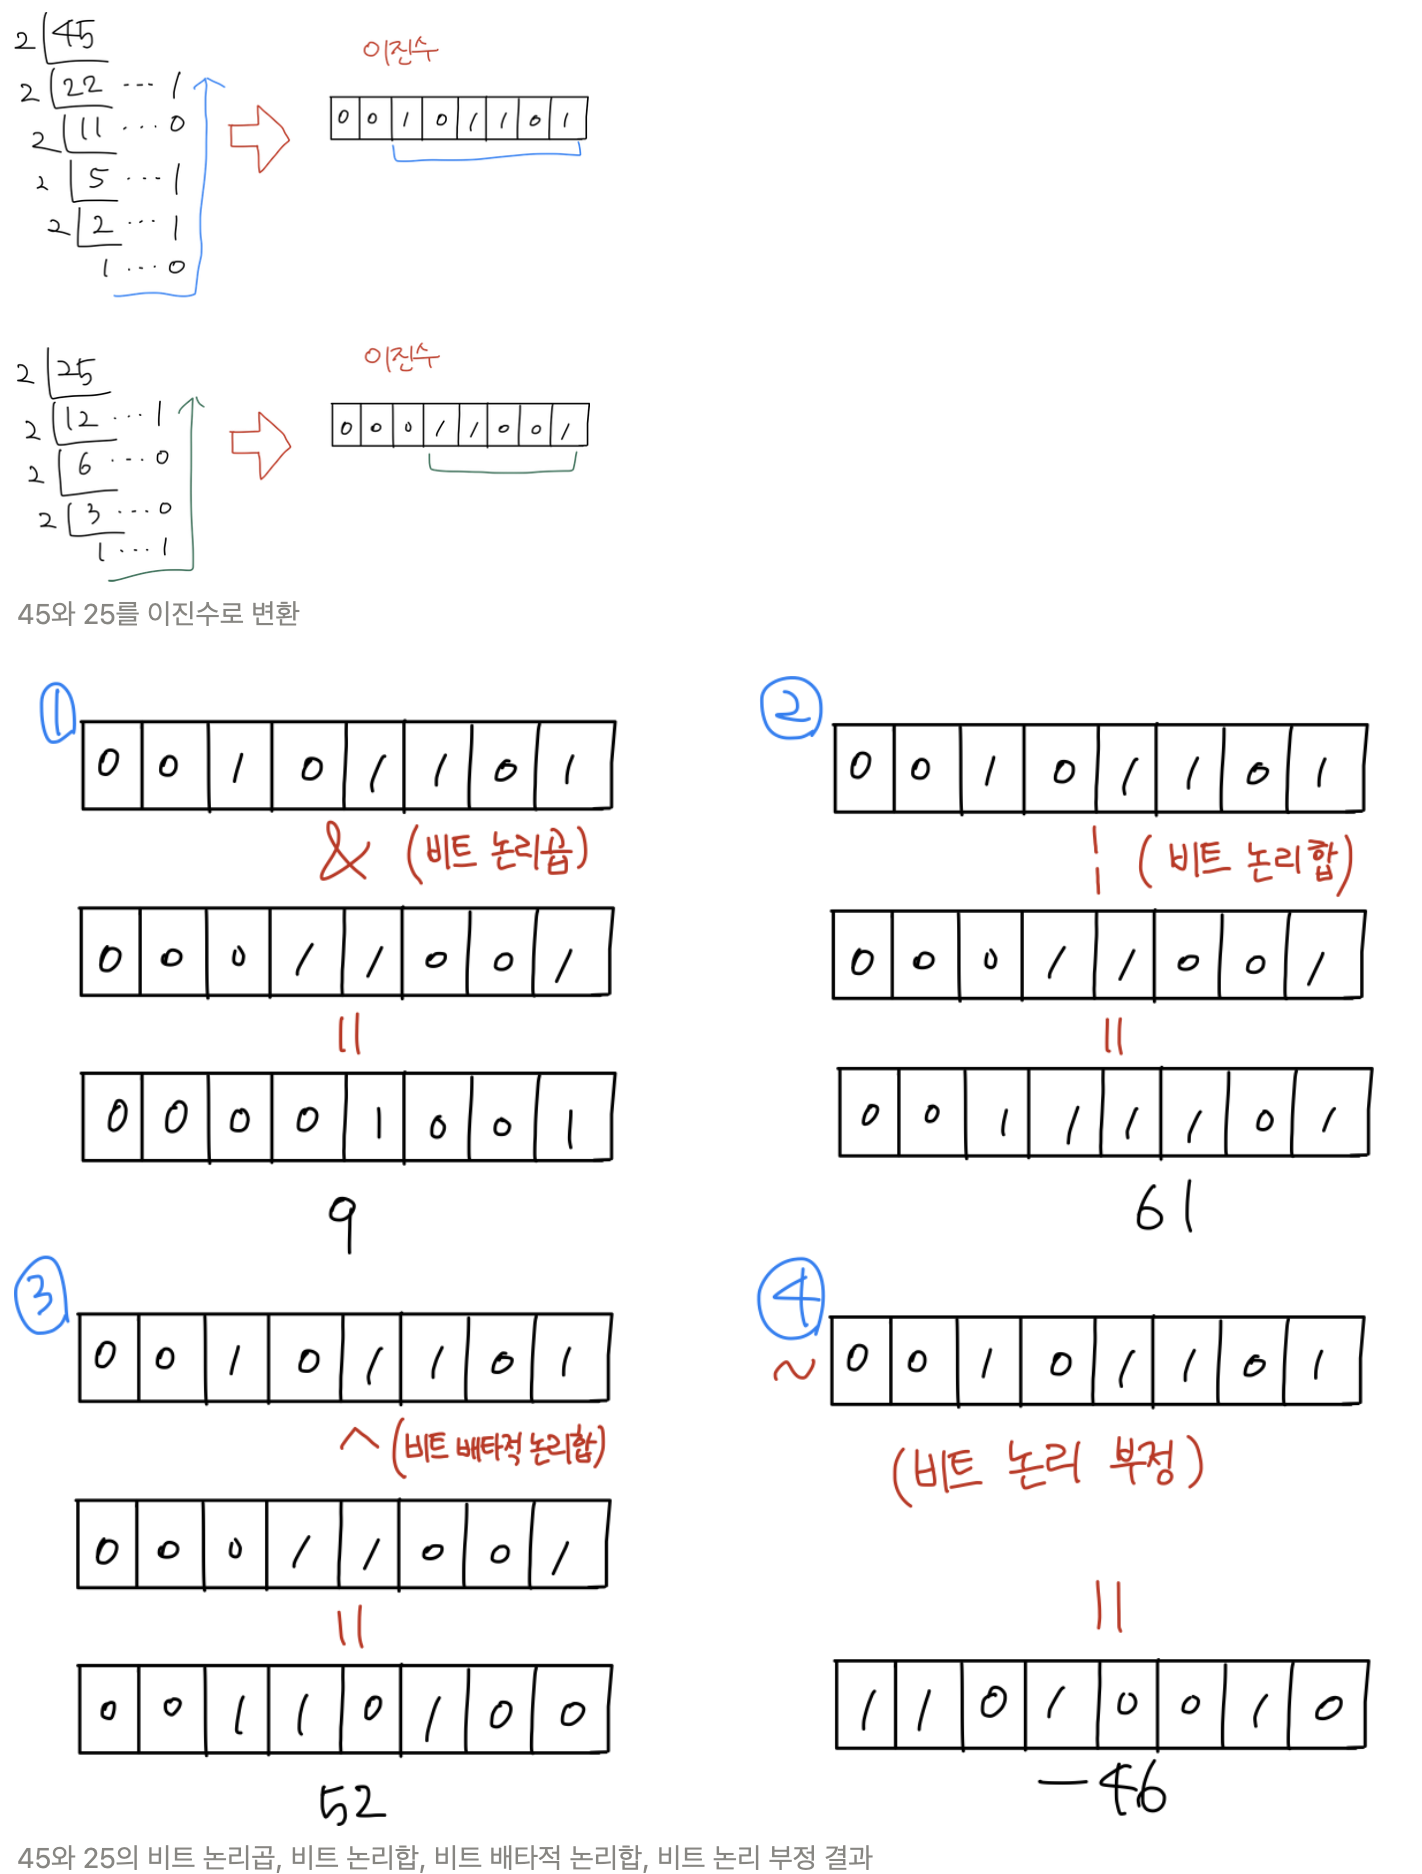 2 45
2 22 ··· 1
2 11 ··· 0
2 5 ··· 1
2 2 ··· 1
1 ··· 0
이진수
0 0 1 0 1 1 0 1
2 25
2 12 ··· 1
2 6 ··· 0
2 3 ··· 0
1 ··· 1
이진수
0 0 0 1 1 0 0 1
45와 25를 이진수로 변환
1
0 0 1 0 1 1 0 1
& (비트 논리곱)
0 0 0 1 1 0 0 1
=
0 0 0 0 1 0 0 1
9
2
0 0 1 0 1 1 0 1
| (비트 논리합)
0 0 0 1 1 0 0 1
=
0 0 1 1 1 1 0 1
61
3
0 0 1 0 1 1 0 1
^ (비트 배타적 논리합)
0 0 0 1 1 0 0 1
=
0 0 1 1 0 1 0 0
52
4
~ 0 0 1 0 1 1 0 1
(비트 논리 부정)
=
1 1 0 1 0 0 1 0
-46
45와 25의 비트 논리곱, 비트 논리합, 비트 배타적 논리합, 비트 논리 부정 결과